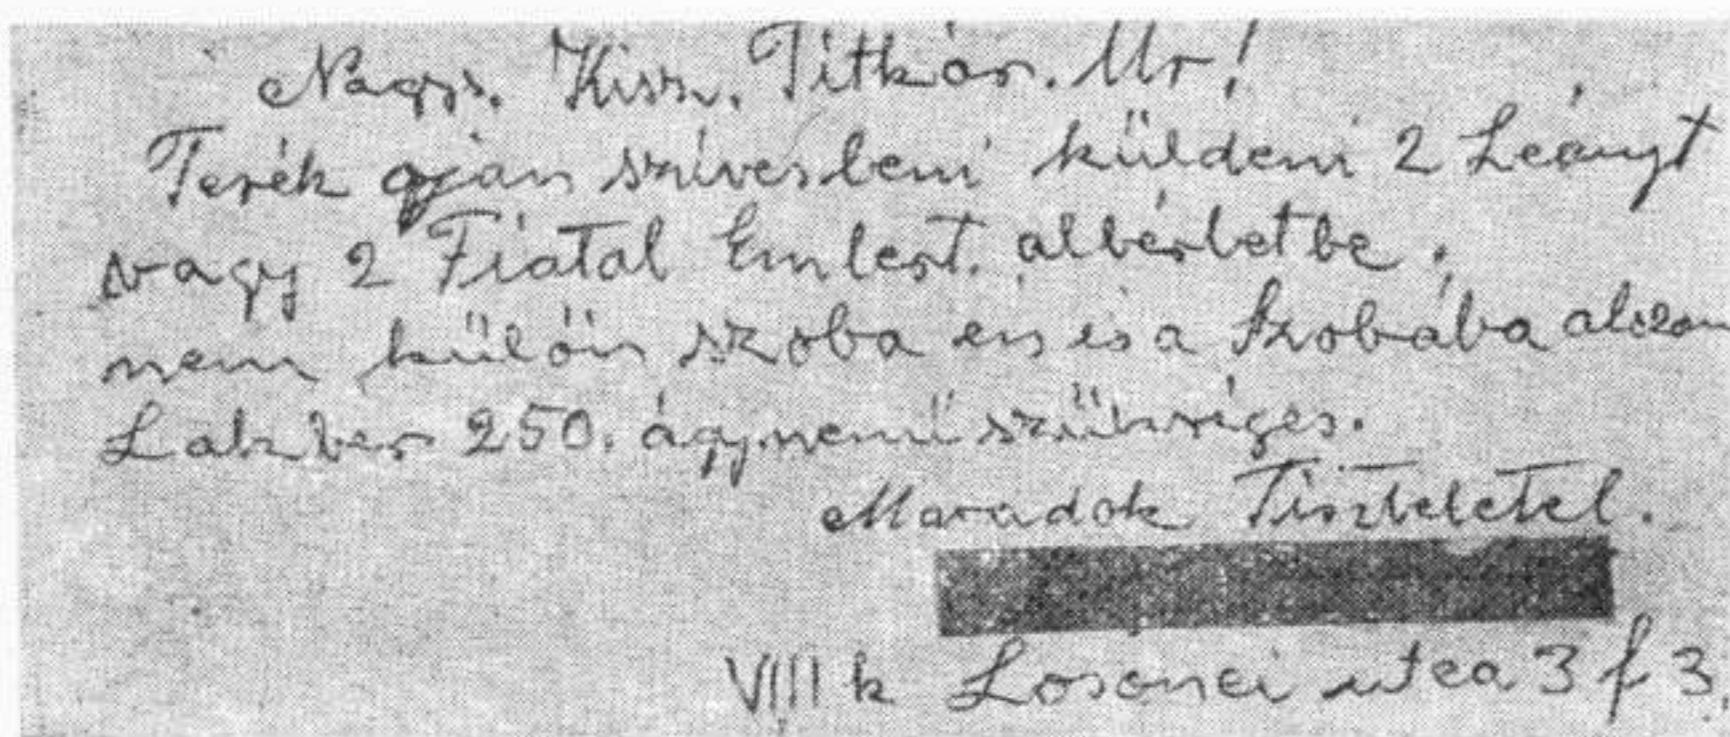 Nags. Kisz. Titkár. Ur!
Terék szivesbeni küldeni 2 Leányt
vagy 2 Fiatal Embert. albérletbe.
nem külön szoba én is a Szobába alszom
Lakbér 250. ágynemű szükséges.
Maradok Tisztelettel.
VIII k Losonci utca 3 f 3.